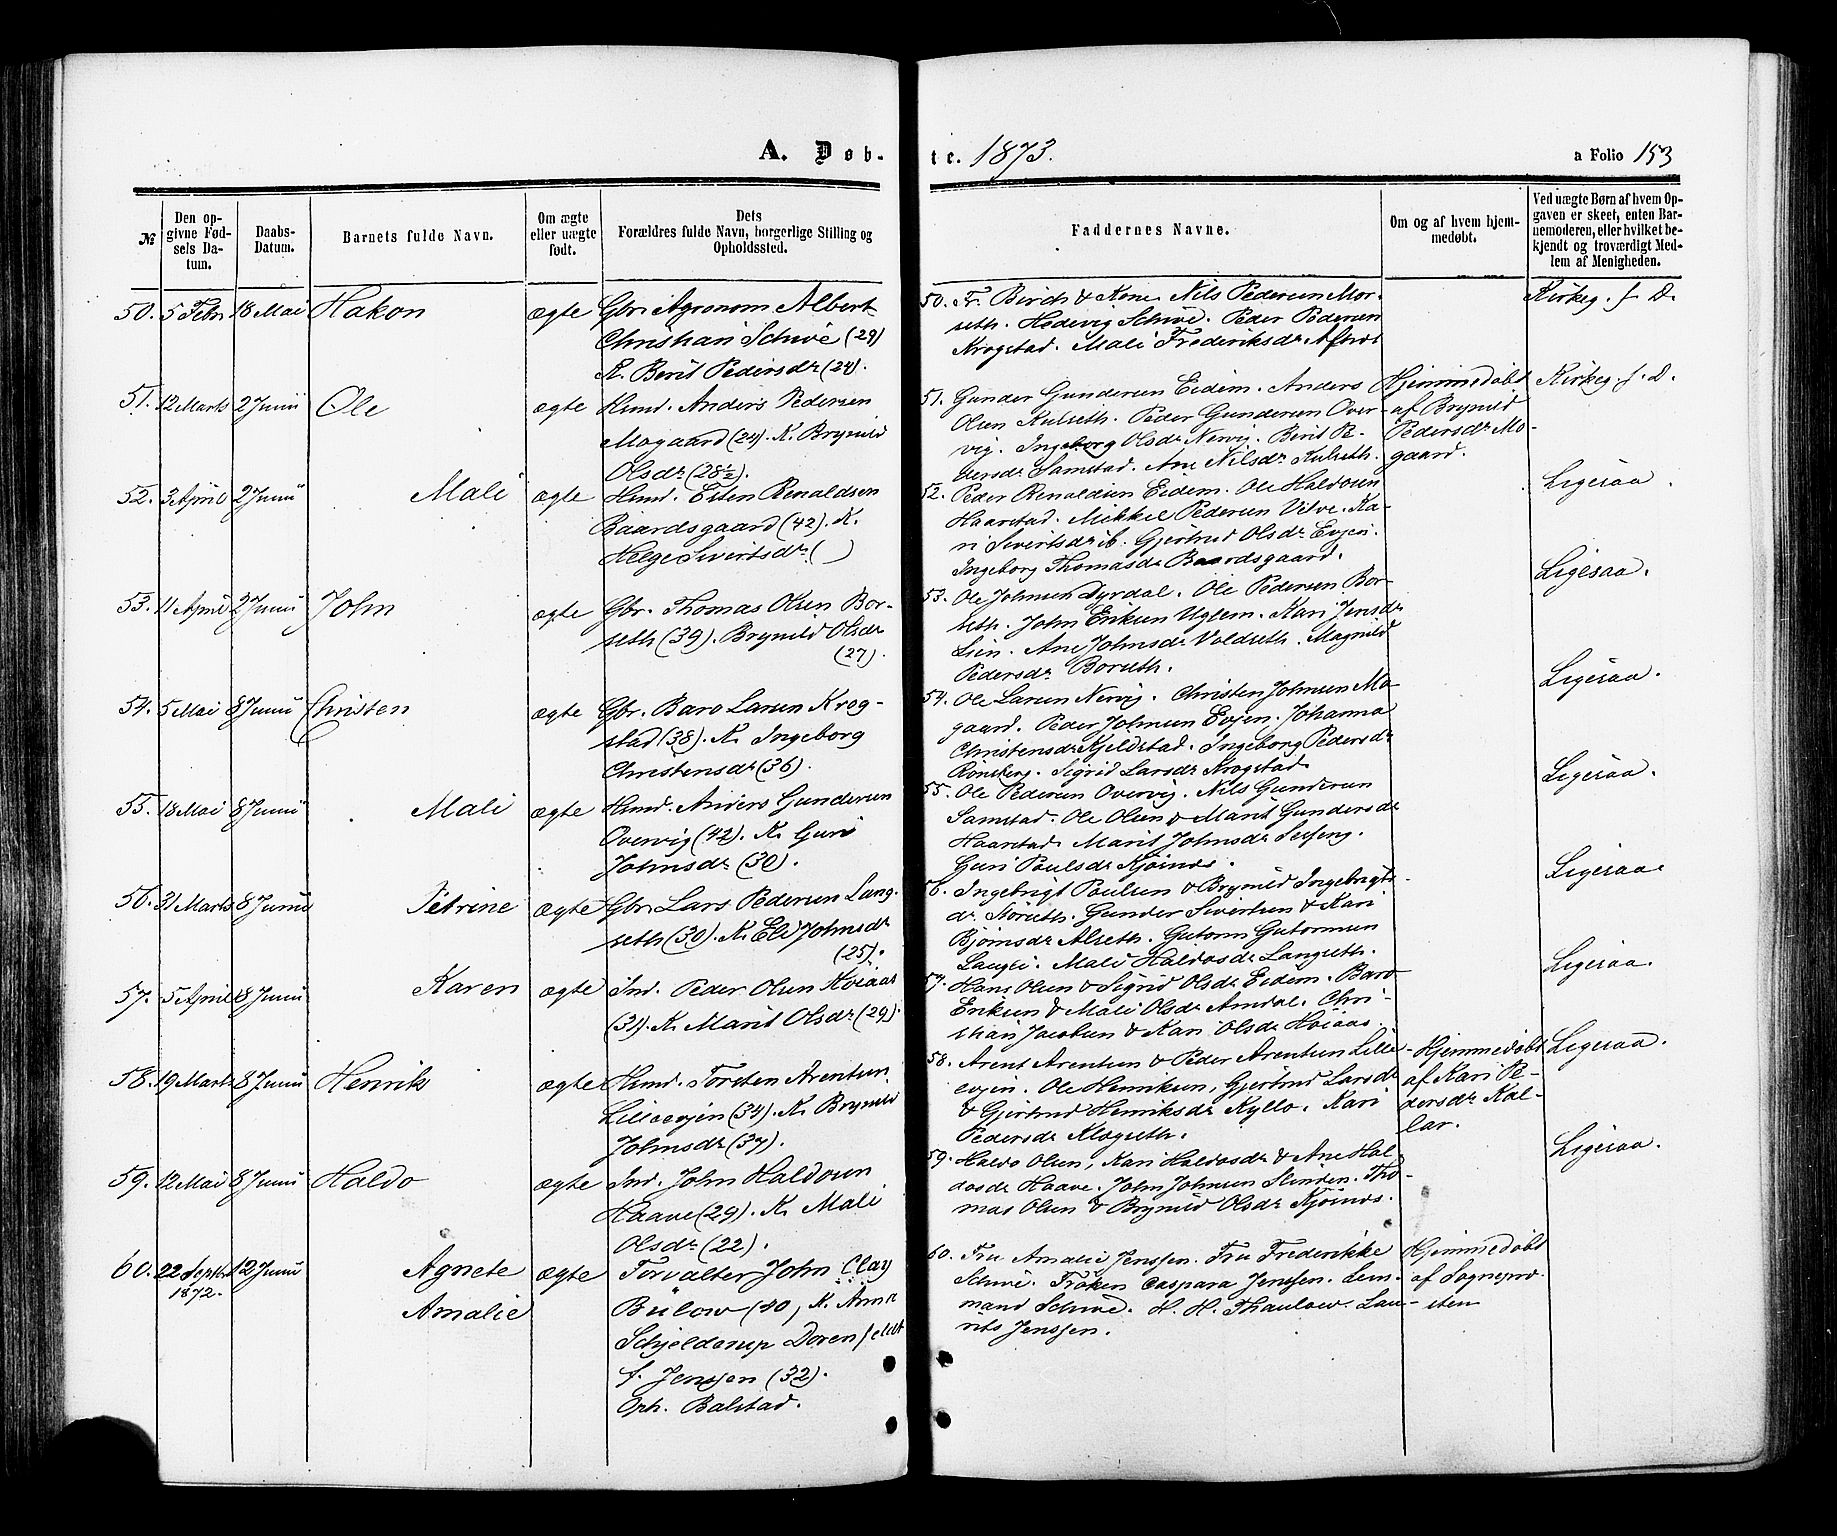 A. Døb-
te. 1873.
a Folio 153
№
Den op-
givne Fød-
sels Da-
tum.
Daabs-
Datum.
Barnets fulde Navn.
Om ægte
eller uægte
født.
Dets
Forældres fulde Navn, borgerlige Stilling og
Opholdssted.
Faddernes Navne.
Om og af hvem hjem-
medøbt.
Ved uægte Børn af hvem Op-
gaven er skeet, enten Bar-
nemoderen, eller hvilket be-
kjendt og troværdigt Med-
lem af Menigheden.
50. 5 Febr 18 Mai Hakon ægte Gbr. Agronom Albert
Christian Schive (29)
K. Berit Pedersdr (24).
50. Fr. Birch & Kone. Nils Pedersen Mor-
seth. Hedevig Schive. Peder Pedersen
Krogstad. Mali Frederiksdr
Kirkeg. f. D.
51. 12 Marts 2 Junii Ole ægte Hmd. Anders Pedersen
Mogaard (24). K. Brynild
Olsdr (28½).
51. Gunder Gundersen Eidem. Anders
Olsen Kulseth. Peder Gundersen Over-
vig. Ingeborg Olsdr Nervig. Berit Pe-
dersdr Samstad. Ane Nilsdr Kulseth.
Hjemmedøbt
af Brynild
Pedersdr Mo-
gaard.
Kirkeg. f. D.
52. 3 April 2 Junii Mali ægte Hmd. Esten Renaldsen
Baardsgaard (42). K.
Helge Sivertsdr ( )
52. Peder Renaldsen Eidem. Ole Haldosen
Haarstad. Mikkel Pedersen Vilve. Ka-
ri Sivertsdr ib. Gjertrud Olsdr Evjen.
Ingeborg Thomasdr Baardsgaard.
Ligesaa.
53. 11 April 2 Junii John ægte Gbr. Thomas Olsen Bor-
seth (39). Brynild Olsdr
(27).
53. Ole Johnsen Dyrdal. Ole Pedersen Bor-
seth. John Eriksen Uglem. Kari Jensdr
Lien. Ane Johnsdr Voldseth. Magnild
Pedersdr Borseth.
Ligesaa.
54. 5 Mai 8 Junii Christen ægte Gbr. Baro Larsen Krog-
stad (38). K. Ingeborg
Christensdr (36).
54. Ole Larsen Nervig. Christen Johnsen Mo-
gaard. Peder Johnsen Evjen. Johanna
Christensdr Kjeldstad. Ingeborg Pedersdr
Rönsberg. Sigrid Larsdr Krogstad.
Ligesaa.
55. 18 Mai 8 Junii Mali ægte Hmd. Anders Gundersen
Overvig (42). K. Guri
Johnsdr (30).
55. Ole Pedersen Overvig. Nils Gundersen
Samstad. Ole Olsen & Marit Gundersdr
Haarstad. Marit Johnsdr Sesseng.
Guri Paulsdr Kjösnes.
Ligesaa.
56. 31 Marts 8 Junii Petrine ægte Gbr. Lars Pedersen Lang-
seth (30). K. Eli Johnsdr
(25).
56. Ingebrigt Paulsen & Brynild Ingebrigts-
dr Störseth. Gunder Sivertsen & Kari
Björnsdr Alseth. Gutorm Gutormsen
Langli. Mali Haldosdr Langseth.
Ligesaa.
57. 5 April 8 Junii Karen ægte Ind. Peder Olsen Hviaas
(31). K. Marit Olsdr (29).
57. Hans Olsen & Sigrid Olsdr Eidem. Baro
Eriksen & Mali Olsdr Amdal. Chri-
stian Jacobsen & Kari Olsdr Hviaas.
Ligesaa.
58. 19 Marts 8 Junii Henrik ægte Hmd. Torsten Arentsen
Lilleevjen (34). K. Brynild
Johnsdr (37).
58. Arent Arentsen & Peder Arentsen Lille-
evjen. Ole Henriksen, Gjertrud Larsdr
& Gjertrud Henriksdr Kyllo. Kari
Pedersdr Klogseth.
Hjemmedøbt
af Kari Pe-
dersdr Kal-
lar.
Ligesaa.
59. 12 Mai 8 Junii Haldo ægte Ind. John Haldosen
Haave (29). K. Mali
Olsdr (22).
59. Haldo Olsen, Kari Haldosdr & Ane Hal-
dosdr Haave. John Johnsen Slinden. Tho-
mas Olsen & Brynild Olsdr Kjösnes.
Ligesaa.
60. 22 Septbr 12 Junii Agnete ægte Forvalter John Clay
1872.
Amalie Bülow (40, K. Anna
Schjelderup Dorenfeldt
f. Jenssen (32).
Oph. Balstad.
60. Fru Amalie Jenssen. Fru Frederikke
Schive. Fröken Caspara Jenssen. Lens-
mand Schive. H. H. Thaulow. Lau-
rits Jenssen.
Hjemmedøbt
af Sognepre-
sten